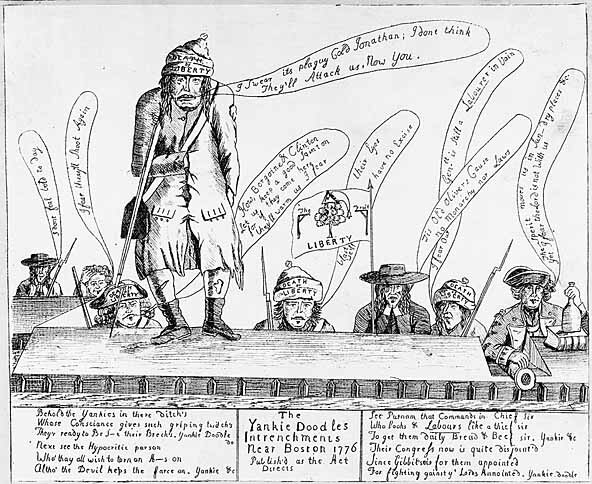 I Swear its plaguy Cold Jonathan; I dont think
They'll Attack us, Now You.
DEATH
or
LIBERTY
I dont feel bold to day.
I fear they'll Shoot Again
Now Borgoine & Clinton
keep a good Lainton
let us
if they come here
They'll warm us I fear
their Eyes
have no Excise
The
Tree
LIBERTY
DEATH
or
LIBERTY
Gen.ll is still a Labourer in Vain
Tis Old Oliver's Cause
No Monarchy nor Laws
DEATH
LIBERTY
moves us in dry places &c
I fear the Lord is not with us
Behold the Yankies in there ditch's
Whose Conscience gives such griping twitch's
They'r ready to Be S—t their Brech's. Yankie Doodle do
Next see the Hypocritic parson
Who thay all wish to turn an A—s on
Altho' the Devil keeps the farce on. Yankie &c
The
Yankie Doodles
Intrenchments
Near Boston 1776
Publish'd as the Act
Directs
See Putnam that Commands in Chief sir
Who looks & Labours like a thief sir
To get them daily Bread & Beef sir. Yankie &c
Their Congress now is quite disjoint'd
Since Gibbits is for them appointed
For fighting gainst ye Lords Annointed. Yankie doodle